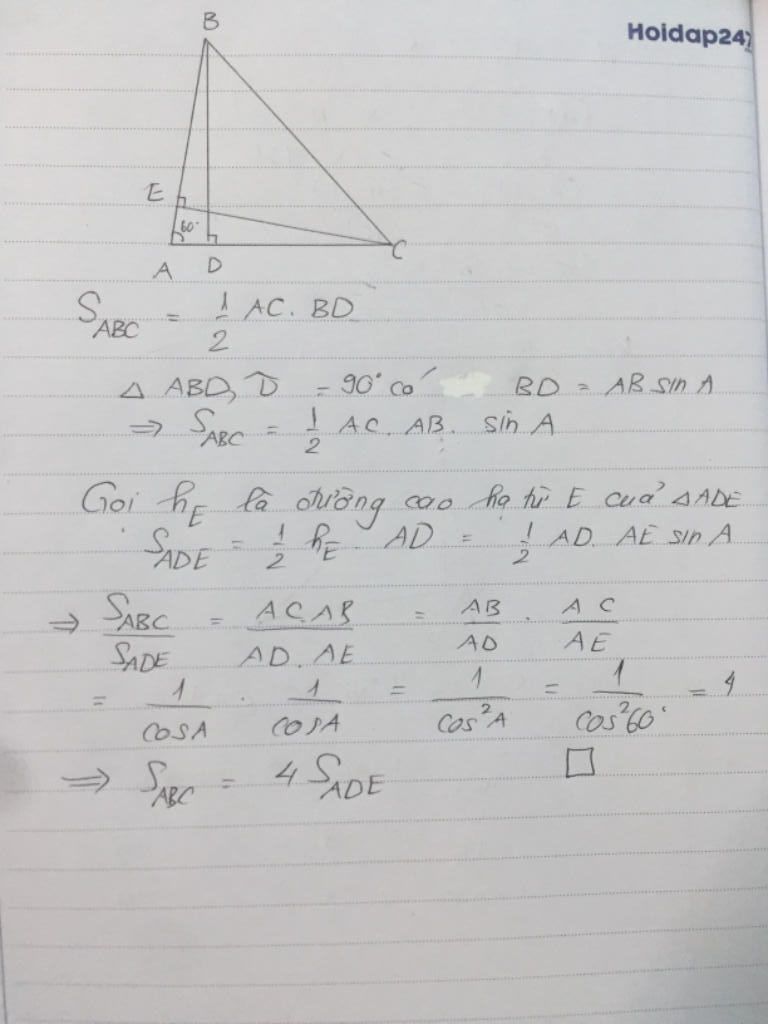 Hoidap247
B
E
60°
A D C
S_ABC = 1/2 AC. BD
△ ABD, D̂ = 90° có BD = AB sin A
⇒ S_ABC = 1/2 AC. AB. sin A
Gọi h_E là đường cao hạ từ E của △ADE
S_ADE = 1/2 h_E . AD = 1/2 AD. AE sin A
⇒ S_ABC/S_ADE = AC.AB/AD.AE = AB/AD . AC/AE
= 1/cosA . 1/cosA = 1/cos²A = 1/cos²60° = 4
⇒ S_ABC = 4 S_ADE □